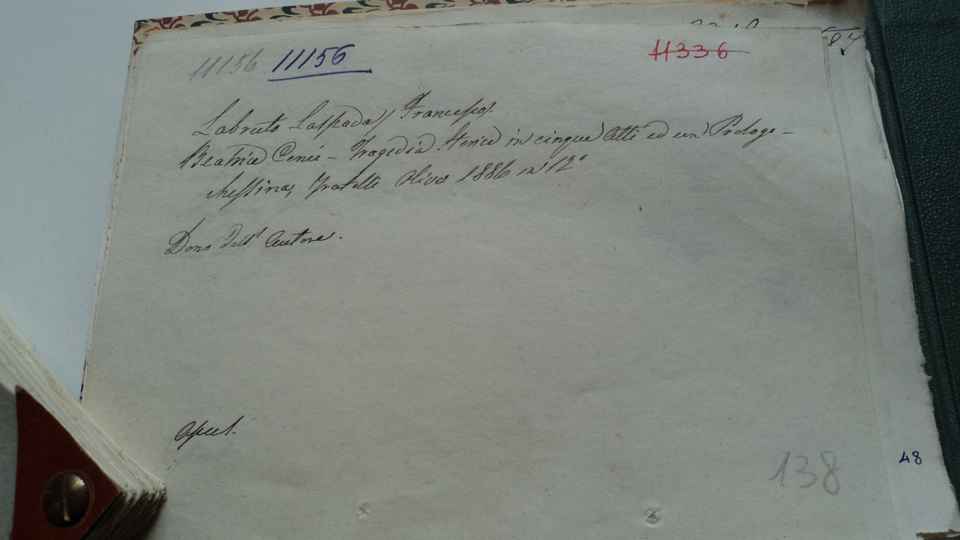 11156 11156 11336
Labruto Laspada, Francesco
Beatrice Cenci - Tragedia Storica in cinque Atti ed un Prologo -
Messina, Fratelli Oliva 1886 in 12°
Dono dell' Autore.
Opusc.
138
48